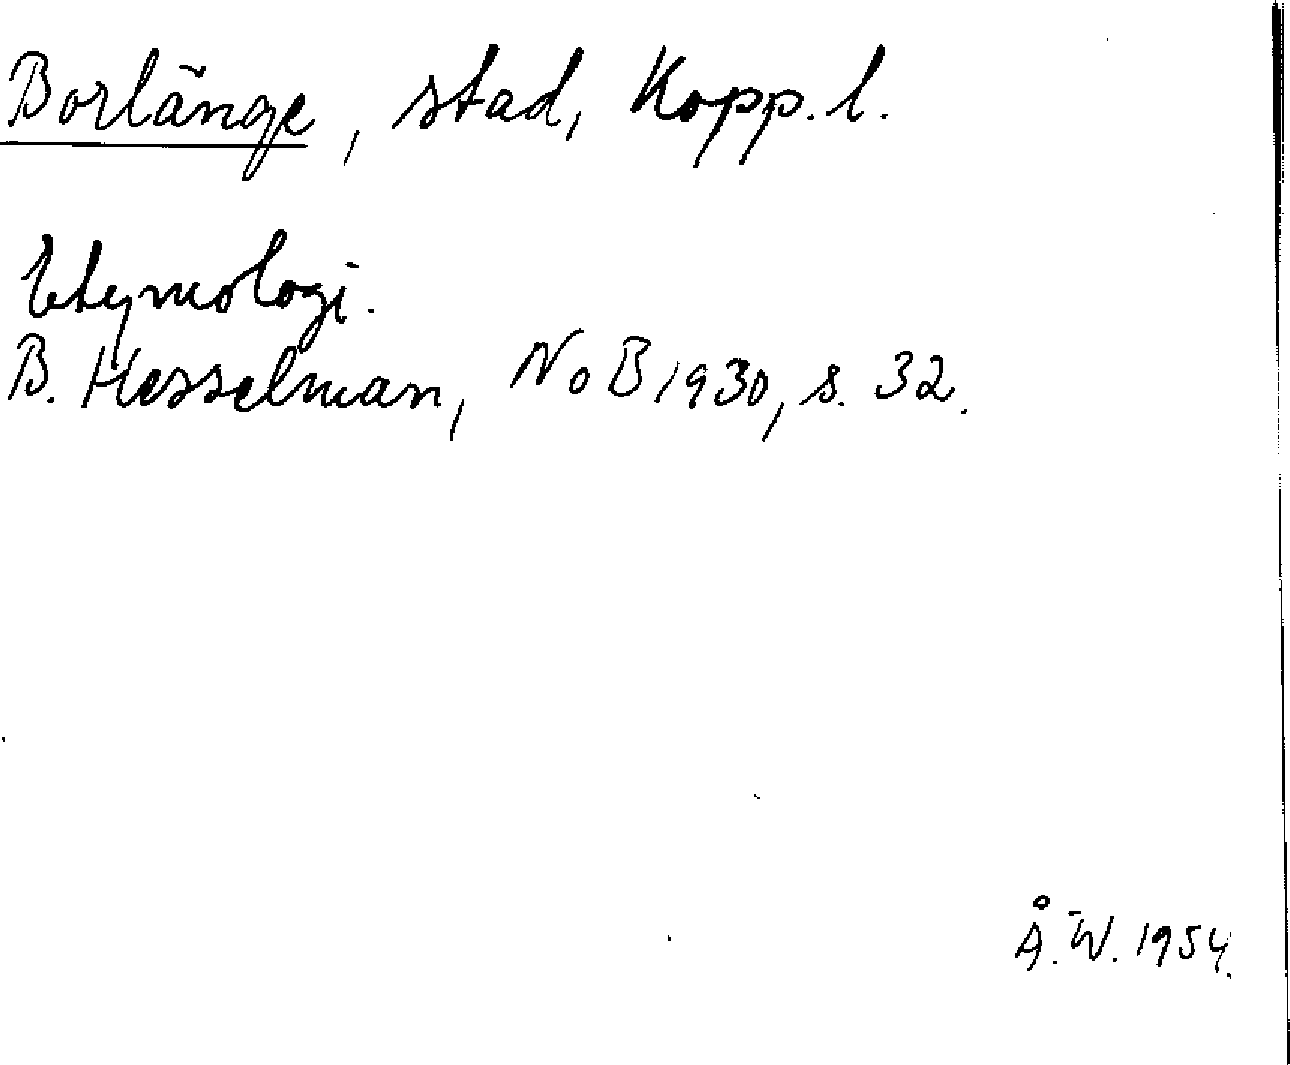 Borlänge, stad, Kopp. l.
Etymologi.
B. Hesselman, NoB 1930, s. 32.
Å. W. 1954.